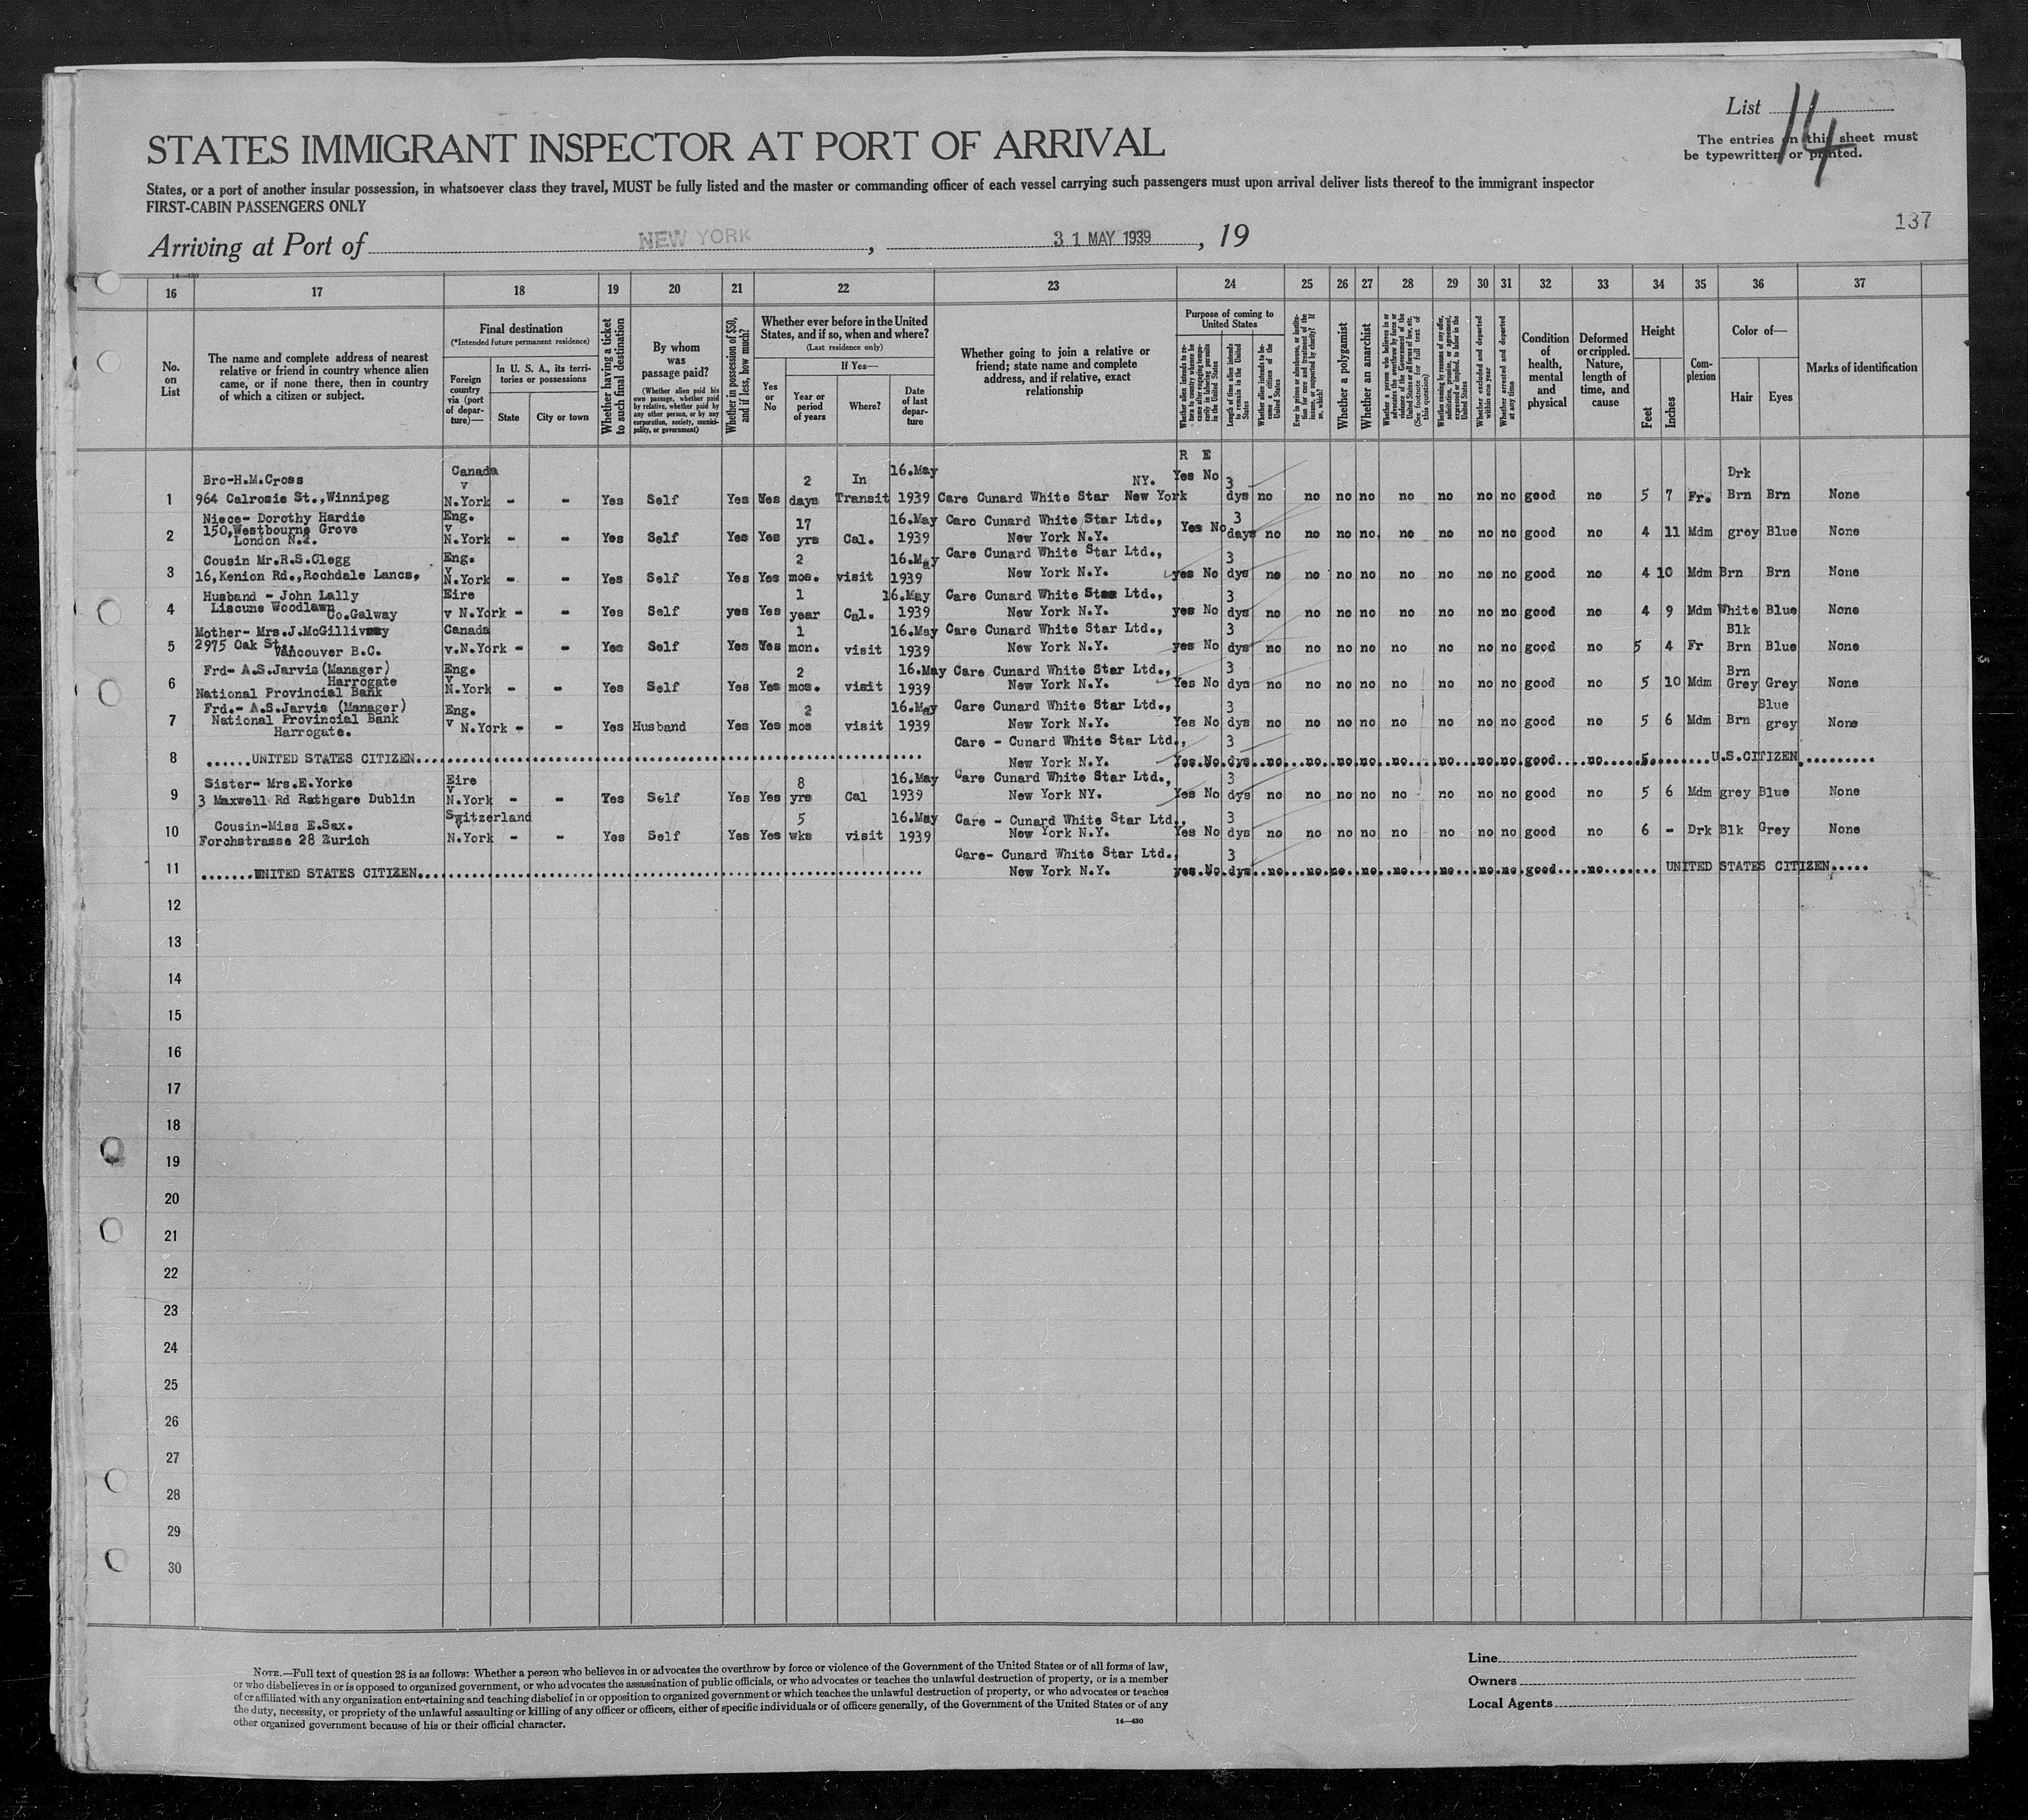 List 14
The entries on this sheet must
be typewritten or printed.
STATES IMMIGRANT INSPECTOR AT PORT OF ARRIVAL
States, or a port of another insular possession, in whatsoever class they travel, MUST be fully listed and the master or commanding officer of each vessel carrying such passengers must upon arrival deliver lists thereof to the immigrant inspector
FIRST-CABIN PASSENGERS ONLY
137
Arriving at Port of NEW YORK, 31 MAY 1939, 19
14—430
16 17 18 19 20 21 22 23 24 25 26 27 28 29 30 31 32 33 34 35 36 37
No. on List
The name and complete address of nearest relative or friend in country whence alien came, or if none there, then in country of which a citizen or subject.
Final destination
(*Intended future permanent residence)
Foreign country via (port of departure)—
In U. S. A., its territories or possessions
State
City or town
Whether having a ticket to such final destination
By whom was passage paid?
(Whether alien paid his own passage, whether paid by relative, whether paid by any other person, or by any corporation, society, municipality, or government)
Whether in possession of $50, and if less, how much?
Whether ever before in the United States, and if so, when and where?
(Last residence only)
Yes or No
If Yes—
Year or period of years
Where?
Date of last departure
Whether going to join a relative or friend; state name and complete address, and if relative, exact relationship
Purpose of coming to United States
Whether alien intends to return to country whence he came after engaging temporarily in laboring pursuits in the United States
Length of time alien intends to remain in the United States
Whether alien intends to become a citizen of the United States
Ever in prison or almshouse, or institution for care and treatment of the insane, or supported by charity? If so, which?
Whether a polygamist
Whether an anarchist
Whether a person who believes in or advocates the overthrow by force or violence of the Government of the United States or all forms of law, etc. (See footnote for full text of this question)
Whether coming by reasons of any offer, solicitation, promise, or agreement, expressed or implied, to labor in the United States
Whether excluded and deported within one year
Whether arrested and deported at any time
Condition of health, mental and physical
Deformed or crippled. Nature, length of time, and cause
Height
Feet
Inches
Complexion
Color of—
Hair
Eyes
Marks of identification
R E
1 Bro-H.M.Cross
964 Calrosie St.,Winnipeg Canada v N.York - - Yes Self Yes Yes 2 days In Transit 16.May 1939 Care Cunard White Star NY. New York Yes No 3 dys no no no no no no no no good no 5 7 Fr. Drk Brn Brn None
2 Niece- Dorothy Hardie
150,Westbourne Grove
London N.2. Eng. v N.York - - Yes Self Yes Yes 17 yrs Cal. 16.May 1939 Care Cunard White Star Ltd., New York N.Y. Yes No 3 days no no no no. no no no no good no 4 11 Mdm grey Blue None
3 Cousin Mr.R.S.Clegg
16,Kenion Rd.,Rochdale Lancs, Eng. v N.York - - Yes Self Yes Yes 2 mos. visit 16.May 1939 Care Cunard White Star Ltd., New York N.Y. yes No 3 dys no no no no no no no no good no 4 10 Mdm Brn Brn None
4 Husband - John Lally
Liscune Woodlawn
Co.Galway Eire v N.York - - Yes Self yes Yes 1 year Cal. 16.May 1939 Care Cunard White Star Ltd., New York N.Y. yes No 3 dys no no no no no no no no good no 4 9 Mdm White Blue None
5 Mother- Mrs.J.McGillivray
2975 Oak St.,
Vancouver B.C. Canada v.N.York - - Yes Self Yes Yes 1 mon. visit 16.May 1939 Care Cunard White Star Ltd., New York N.Y. yes No 3 dys no no no no no no no no good no 5 4 Fr Blk Brn Blue None
6 Frd- A.S.Jarvis(Manager)
Harrogate
National Provincial Bank Eng. v N.York - - Yes Self Yes Yes 2 mos. visit 16.May 1939 Care Cunard White Star Ltd., New York N.Y. Yes No 3 dys no no no no no no no no good no 5 10 Mdm Brn Grey Grey None
7 Frd.- A.S.Jarvis (Manager)
National Provincial Bank
Harrogate. Eng. v N.York - - Yes Husband Yes Yes 2 mos visit 16.May 1939 Care Cunard White Star Ltd., New York N.Y. Yes No 3 dys no no no no no no no no good no 5 6 Mdm Brn Blue grey None
8 ......UNITED STATES CITIZEN...... Care - Cunard White Star Ltd., New York N.Y. Yes.No.dys 3 no no no no no no no no good no 5 ......U.S.CITIZEN..........
9 Sister- Mrs.E.Yorke
3 Maxwell Rd Rathgare Dublin Eire v N.York - - Yes Self Yes Yes 8 yrs Cal 16.May 1939 Care Cunard White Star Ltd., New York NY. Yes No 3 dys no no no no no no no no good no 5 6 Mdm grey Blue None
10 Cousin-Miss E.Sax.
Forchstrasse 28 Zurich Switzerland v N.York - - Yes Self Yes Yes 5 wks visit 16.May 1939 Care - Cunard White Star Ltd., New York N.Y. Yes No 3 dys no no no no no no no no good no 6 - Drk Blk Grey None
11 .......UNITED STATES CITIZEN...... Care- Cunard White Star Ltd., New York N.Y. yes.No.dys 3 no no no no no no no no good no ...... UNITED STATES CITIZEN.....
12
13
14
15
16
17
18
19
20
21
22
23
24
25
26
27
28
29
30
NOTE.—Full text of question 28 is as follows: Whether a person who believes in or advocates the overthrow by force or violence of the Government of the United States or of all forms of law,
or who disbelieves in or is opposed to organized government, or who advocates the assassination of public officials, or who advocates or teaches the unlawful destruction of property, or is a member
of or affiliated with any organization entertaining and teaching disbelief in or opposition to organized government or which teaches the unlawful destruction of property, or who advocates or teaches
the duty, necessity, or propriety of the unlawful assaulting or killing of any officer or officers, either of specific individuals or of officers generally, of the Government of the United States or of any
other organized government because of his or their official character.
14—430
Line
Owners
Local Agents